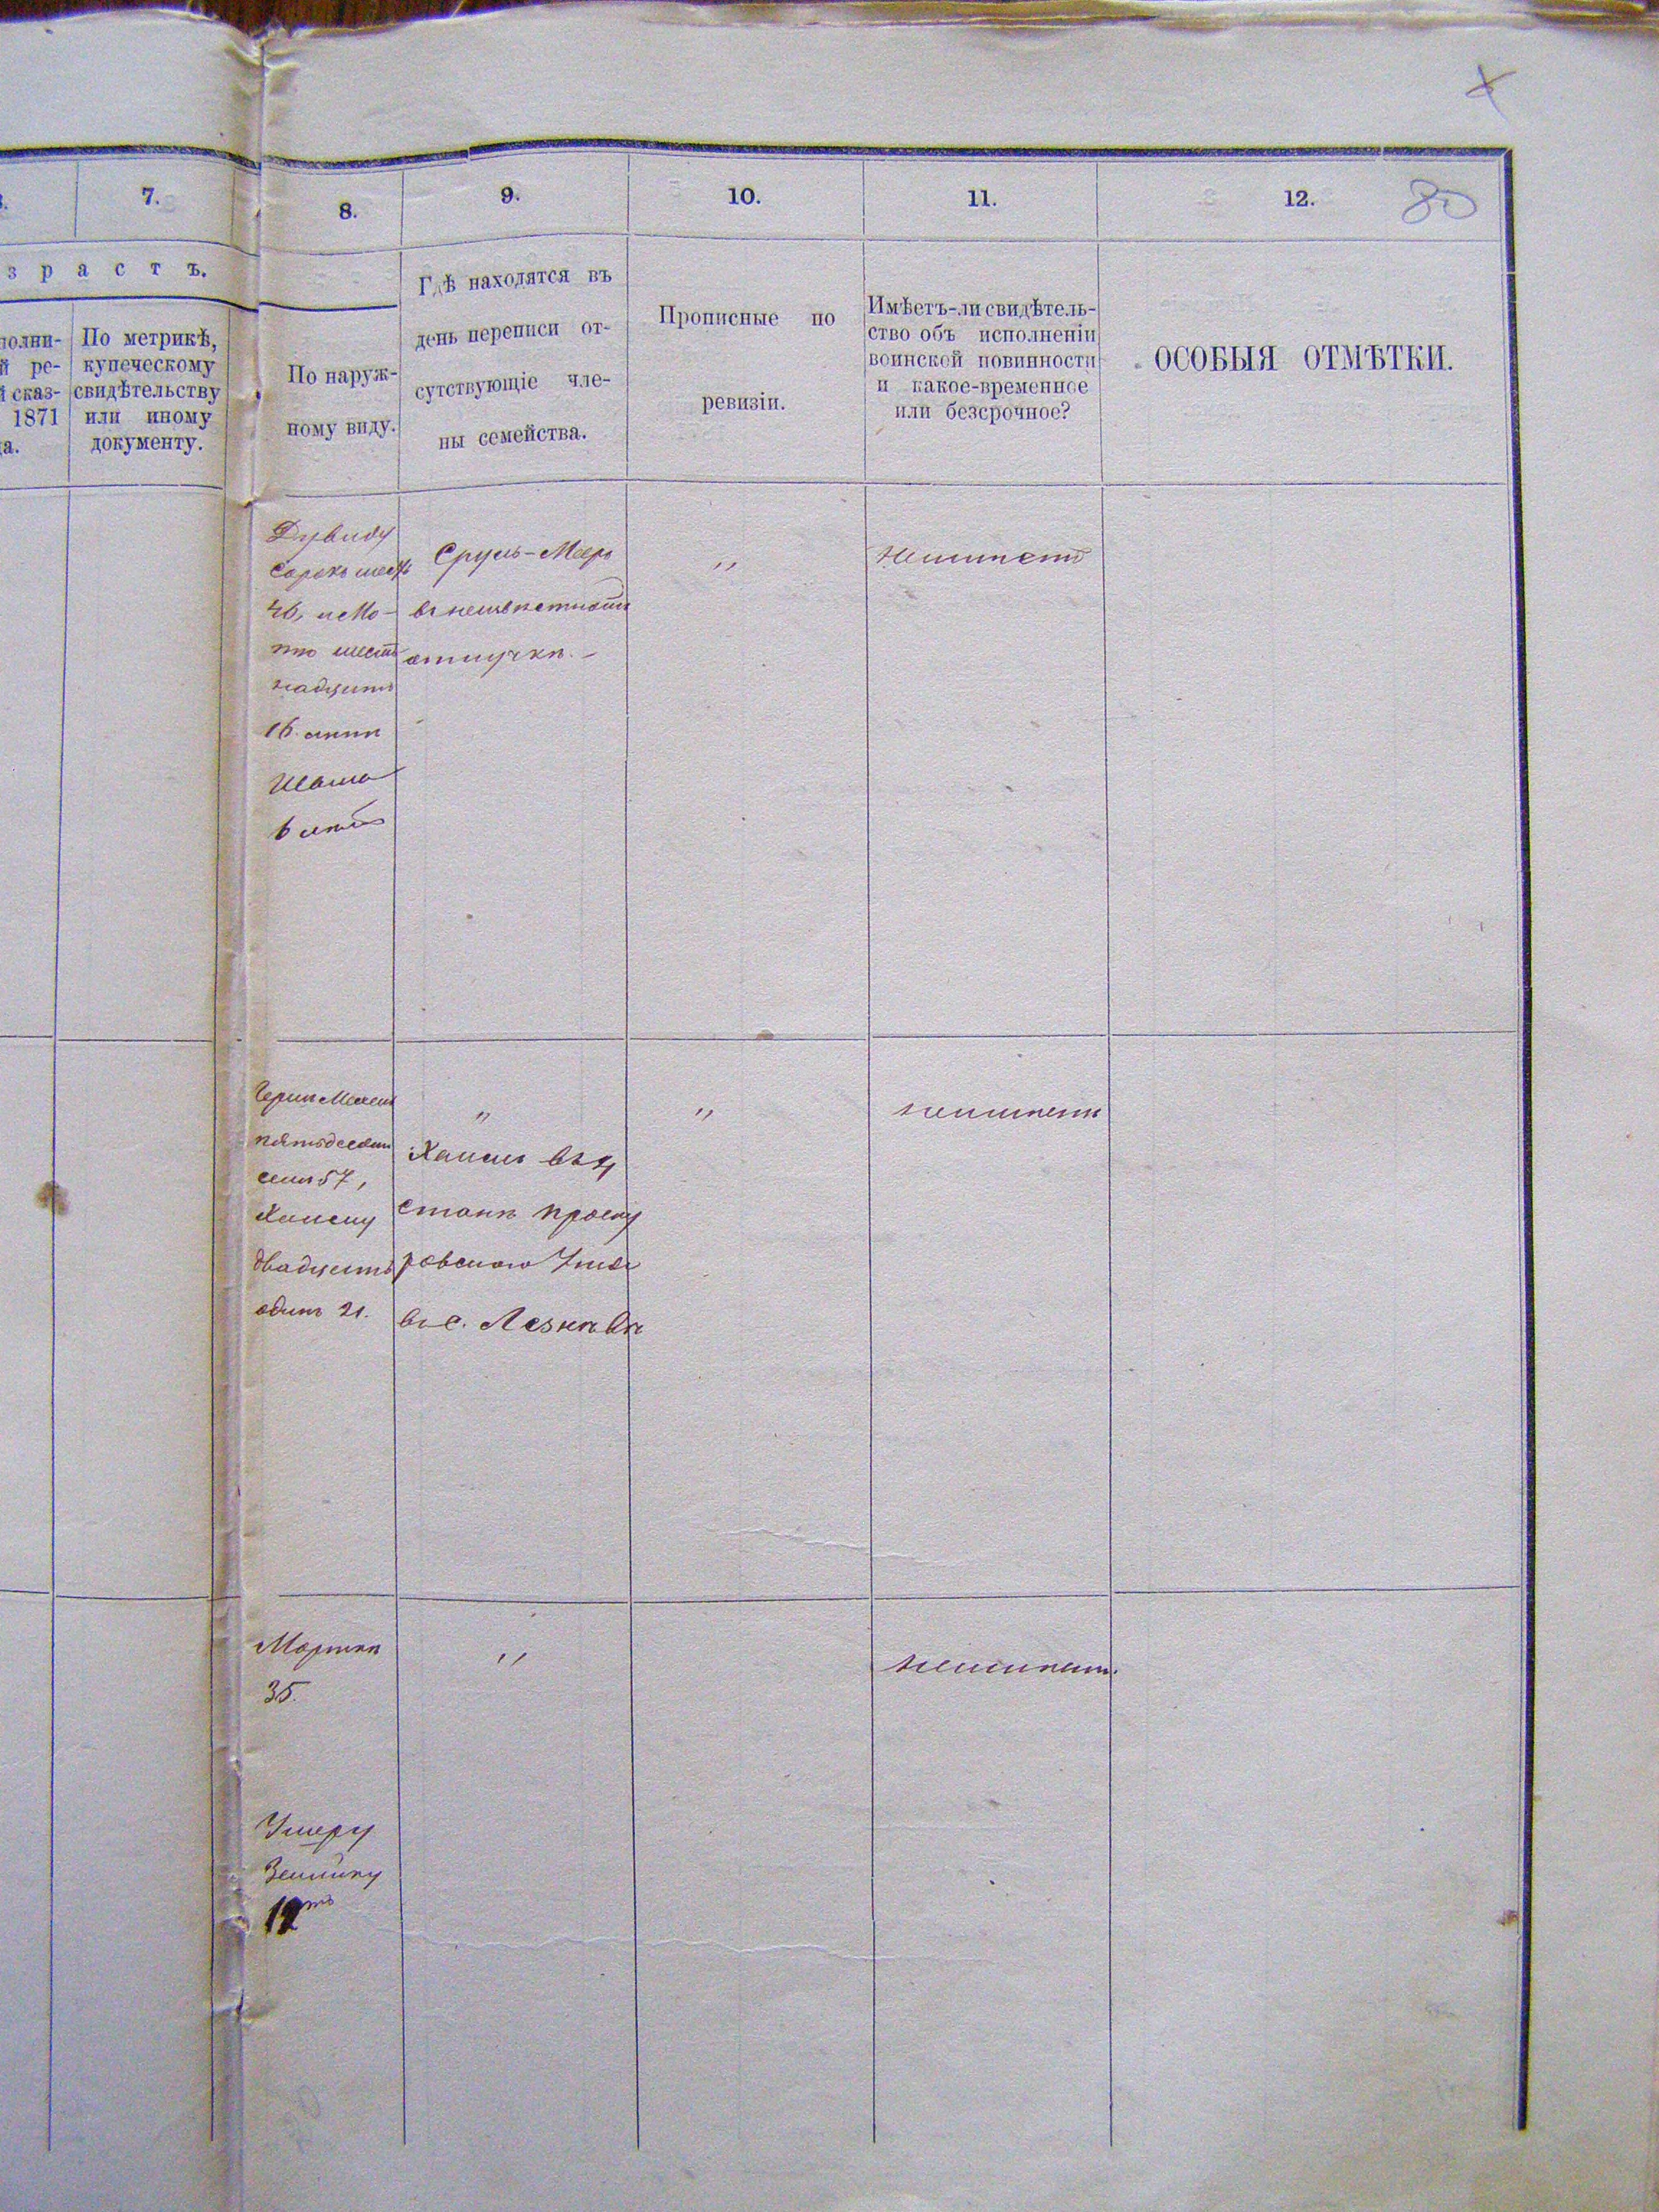 7.
8.
9.
10.
11.
12.
80
з р а с т ъ.
полни-
й ре-
й сказ-
1871
да.
По метрикѣ,
купеческому
свидѣтельству
или иному
документу.
По наруж-
ному виду.
Гдѣ находятся въ
день переписи от-
сутствующіе чле-
ны семейства.
Прописные по
ревизіи.
Имѣетъ-ли свидѣтель-
ство объ исполненіи
воинской повинности
и какое-временное
или безсрочное?
ОСОБЫЯ ОТМѢТКИ.
Дувиду
сорокъ шесть
46, и Мо-
шест
надцать
16 лѣтъ
6 лѣтъ
Сруль-Мееръ
въ неизвѣстной
отлучкѣ. -
"
неимѣетъ
пятьдесятъ
семь 57,
Хаиму
двадцать
одинъ 21.
"
Хаимъ въ 4
станѣ Проску
ровскаго Уѣзда
въ с. Лезнѣвкѣ
"
неимѣетъ
35.
"
неимѣетъ.
Ушеру
Зейлику
12